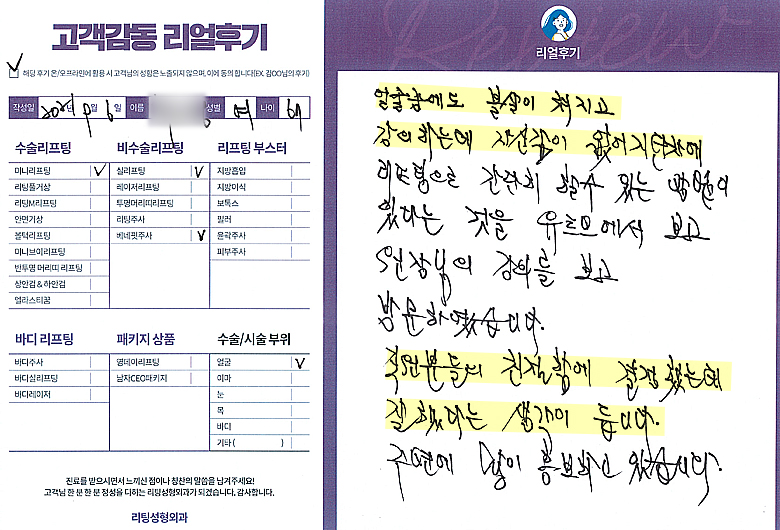 고객감동 리얼후기
✓ 해당 후기 온/오프라인에 활용 시 고객님의 성함은 노출되지 않으며, 이에 동의 합니다(EX. 김OO님의 후기)
작성일 2021년 9월 6일 이름 성별 여 나이 67
수술리프팅
미니리프팅 ✓
리팅풀거상
리팅M리프팅
안면거상
볼턱리프팅
미니브이리프팅
반투명 머리띠 리프팅
상안검 & 하안검
엘라스티꿈
비수술리프팅
실리프팅 ✓
레이저리프팅
투명머리띠리프팅
리팅주사
베네핏주사 ✓
리프팅 부스터
지방흡입
지방이식
보톡스
필러
윤곽주사
피부주사
바디 리프팅
바디주사
바디실리프팅
바디레이저
패키지 상품
영데이리프팅
남자CEO패키지
수술/시술 부위
얼굴 ✓
이마
눈
목
바디
기타 ( )
진료를 받으시면서 느끼신 점이나 칭찬의 말씀을 남겨주세요!
고객님 한 분 한 분 정성을 다하는 리팅성형외과가 되겠습니다. 감사합니다.
리팅성형외과
리얼후기
얼굴중에도 볼살이 쳐지고
강의하는데 자신감이 없어지던차에
리프팅으로 간단히 할수 있는 병원이
있다는 것을 유튜브에서 보고
원장님의 강의를 보고
방문하였습니다.
직원분들의 친절함에 결정했는데
잘했다는 생각이 듭니다.
주변에 많이 홍보하고 있습니다.